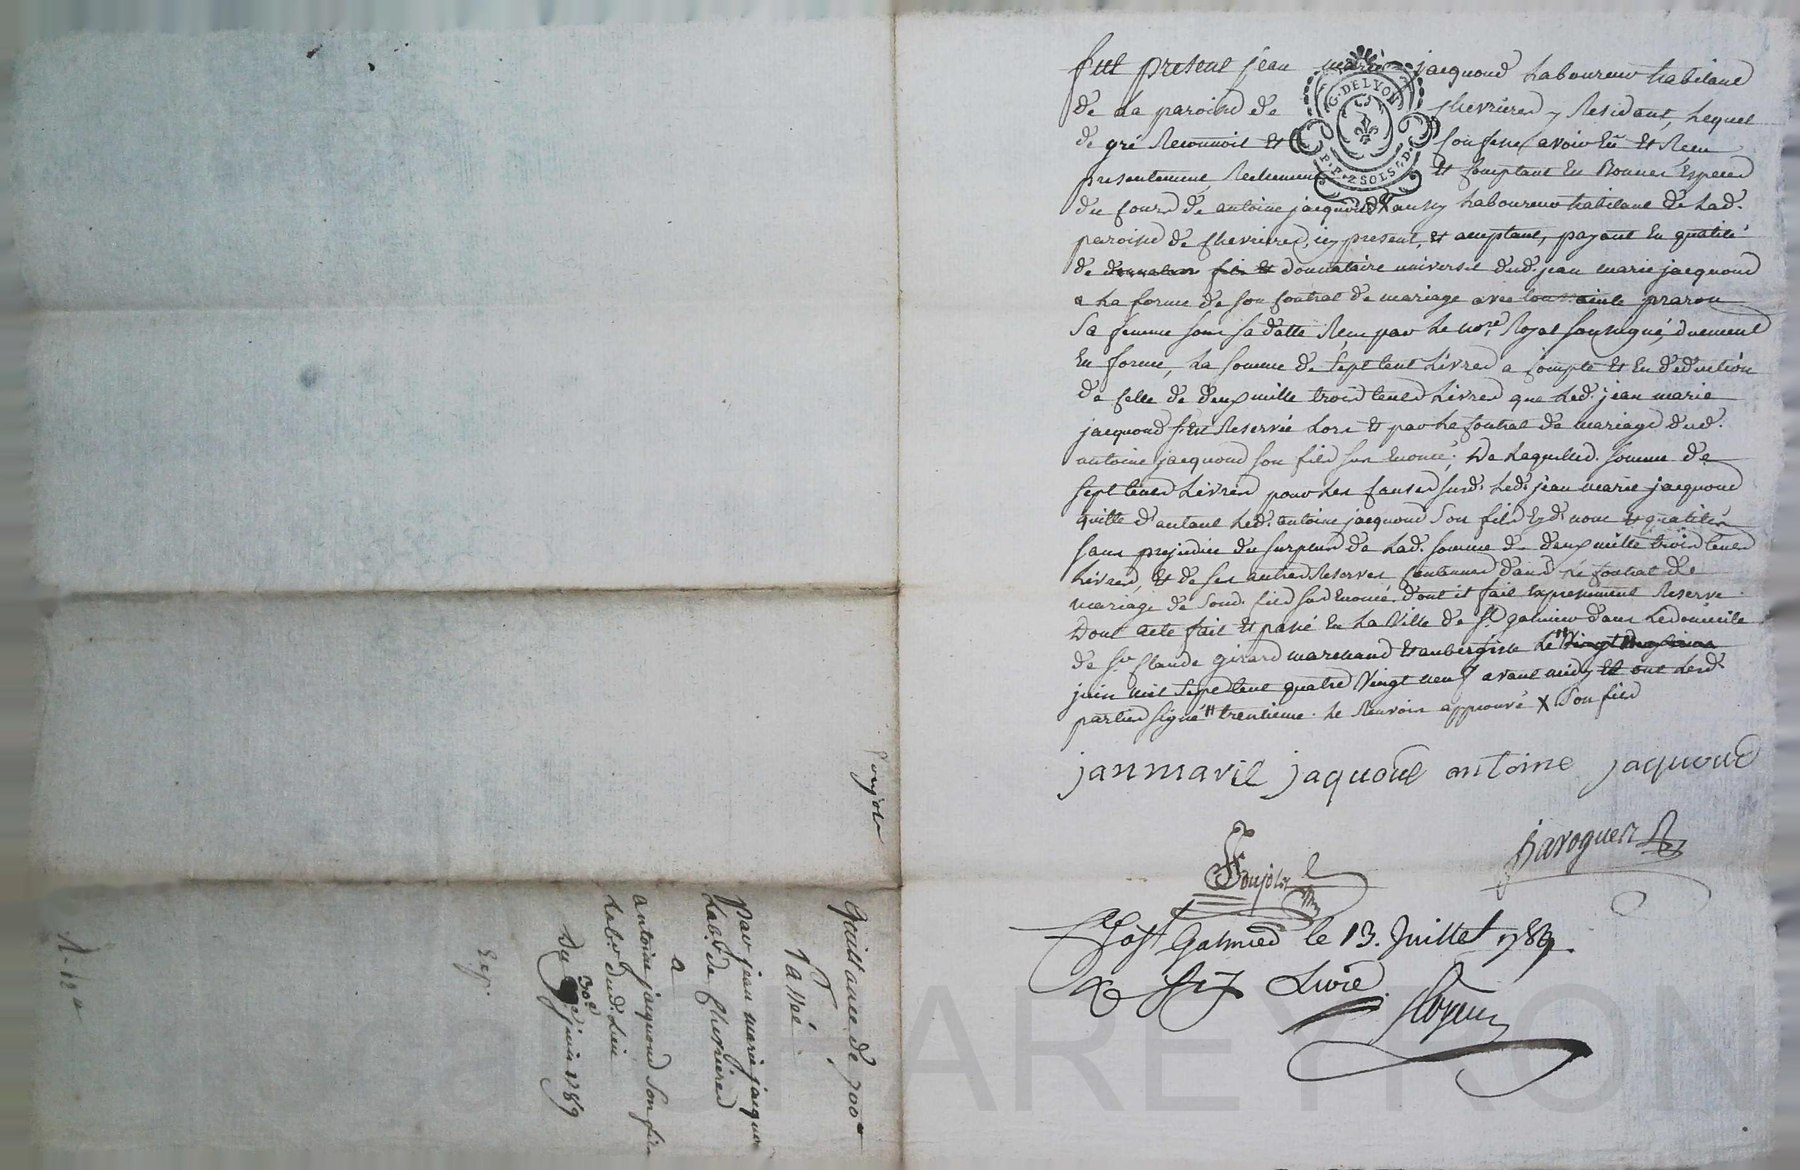 fut présent jean marie jacquond Laboureur habitant
de La paroisse de Chevrieres y Residant, Lequel
de gré Reconnoit et Confesse avoir Eû et Recu
presentement Reelement et Comptant En Bonnes Especes
du Cours de antoine jacquond X aussy Laboureur habitant de Lad.
paroisse de Chevrieres, icy present, et acceptant, payant En qualité
de donnataire universel dud. jean marie jacquond
a La forme de son Contrat de mariage avec praron
Sa femme sous sa datte Recu par Le no.re Royal soussigné, duement
En forme, La somme de Sept Cent Livres a Compte et En deduction
de Celle de deux mille trois Cents Livres que Led. jean marie
jacquond s'est Reservée Lors et par Le Contrat de mariage dud.
antoine jacquond son fils sus Enoncé; De Laquelle somme de
Sept Cents Livres pour Les Causes susd. Led. jean marie jacquond
quitte d'autant Led. antoine jacquond Son fils Esd. nom et qualités
sans prejudice du surplus de Lad. somme de deux mille trois Cents
Livres, et de ses autres Reserves Contenues dans Le Contrat de
mariage de Sond. fils sus Enoncé dont il fait Expressement Reserve
Dont acte fait et passé En La Ville de St galmier dans Le domicile
de Sr Claude girard marchand et aubergiste Le "
juin mil Sept Cent quatre Vingt neuf avant midy et ont Lesd.
parties signé " trentieme. Le Renvoi approuvé X Son fils
janmarie jaquond antoine jaquond
Ponjolat
St Galmier le 13. Juillet 1789
R six Livres
Quittance de 700 #
Passé
par jean marie jacquond
Lab.r de Chevrieres
a
antoine jacquond son fils
Lab.r dud. Lieu
Du 30e juin 1789
Exp.